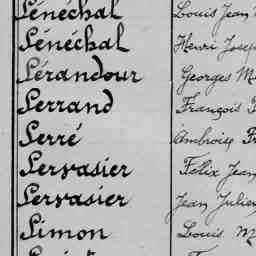 Sénéchal Louis Jean
Sénéchal Henri Josep
Sérandour Georges M
Serrand François
Serré Ambroise Fr
Servasier Félix Jean
Servasier Jean Julien
Simon Louis M